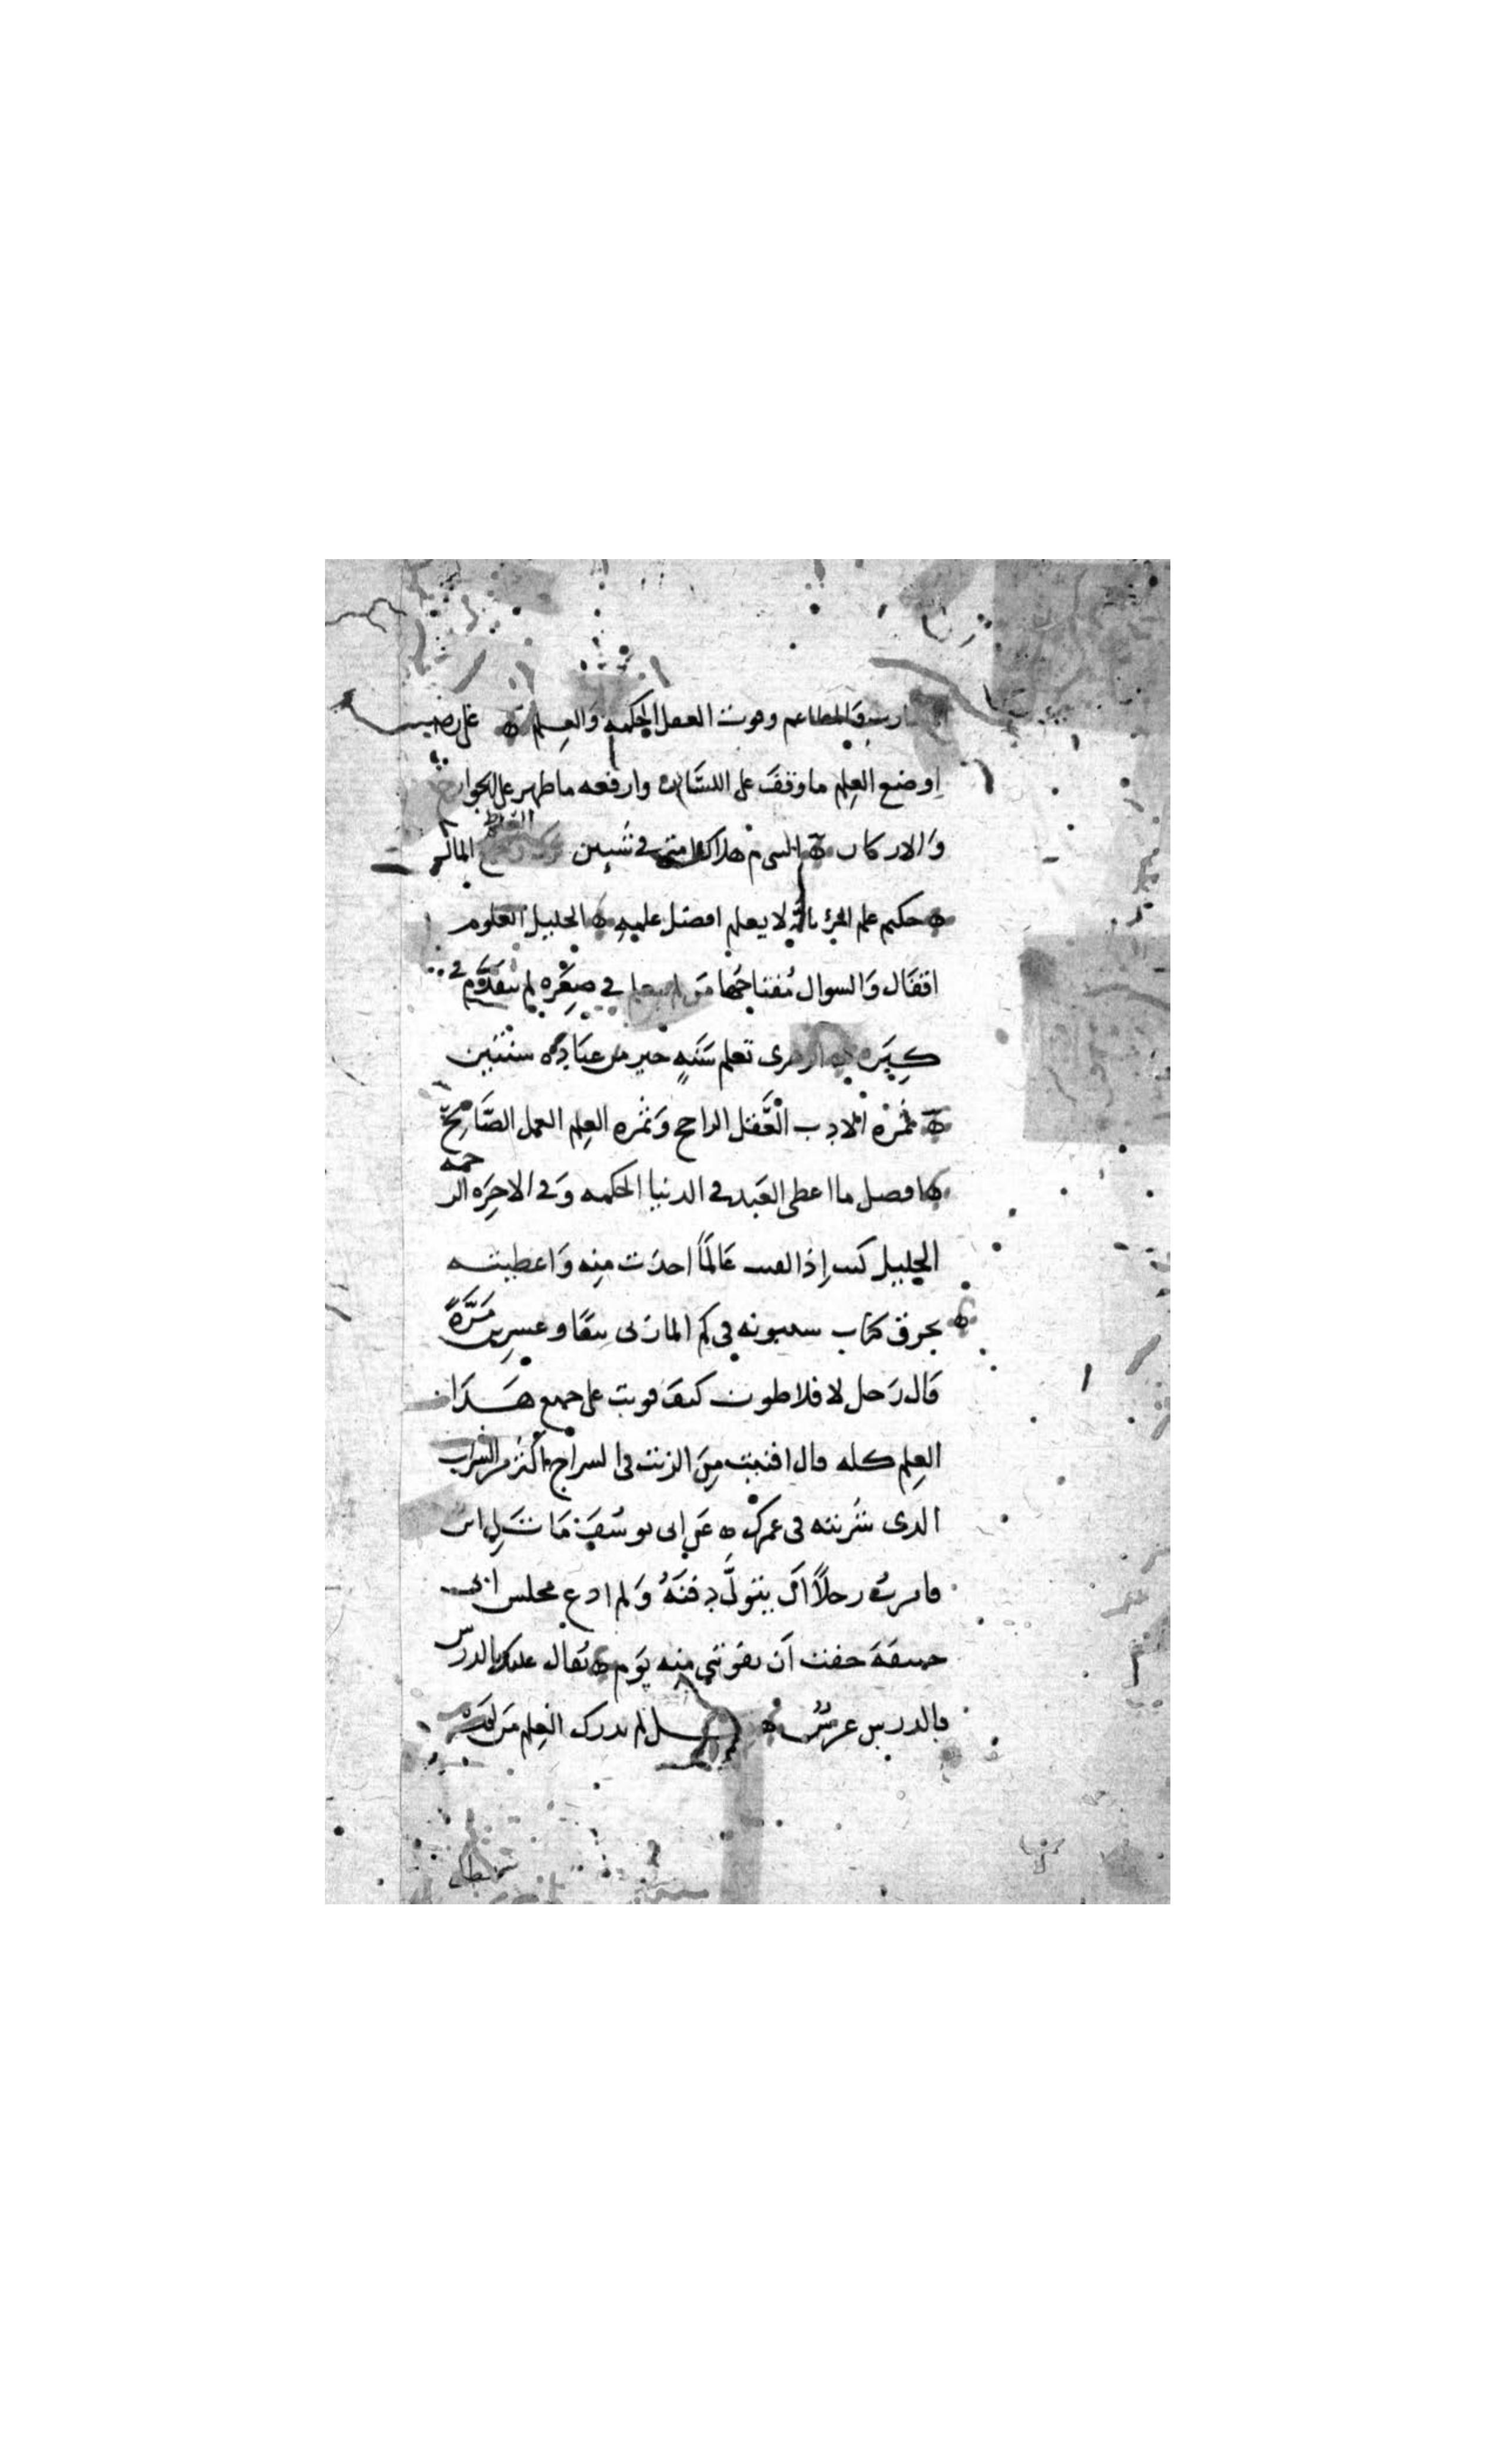 والمطاعم وقوت العقل الحكمة والعلم ه على رضى
اوضع العلم ما وقف على اللسان وارفعه ما ظهر على الجوارح
والاركان ه هلاك امتى فى شيين المال
ه حكيم علم المرء بانه لا يعلم افضل علميه ه الخليل العلوم
اقفال والسوال مفتاحها من لم يتعلم فى صغره لم يتقدم فى
كبره ه ازهرى تعلم سنة خير من عبادة سنتين
ه ثمرة الادب العقل الراجح وثمره العلم العمل الصالح
ه افضل ما اعطى العبد فى الدنيا الحكمه وفى الاخره الرحمه
الخليل كنت إذا لقيت عالما اخذت منه واعطيته
ه تخرق كتاب سيبويه فى كم المازنى نيفا وعشرين مرة
قال رجل لافلاطون كيف قويت على جمع هذا
العلم كله قال افنيت من الزيت فى السراج اكثر من الشراب
الذى شربته فى عمرك ه عن ابى يوسف مات لى ابن
فامرت رجلا ان يتولى دفنه ولم ادع مجلس ابى
حنيفة خفت ان يفوتنى منه يوم ه يقال عليك بالدرس
فالدرس غرس ه لم يدرك العلم من